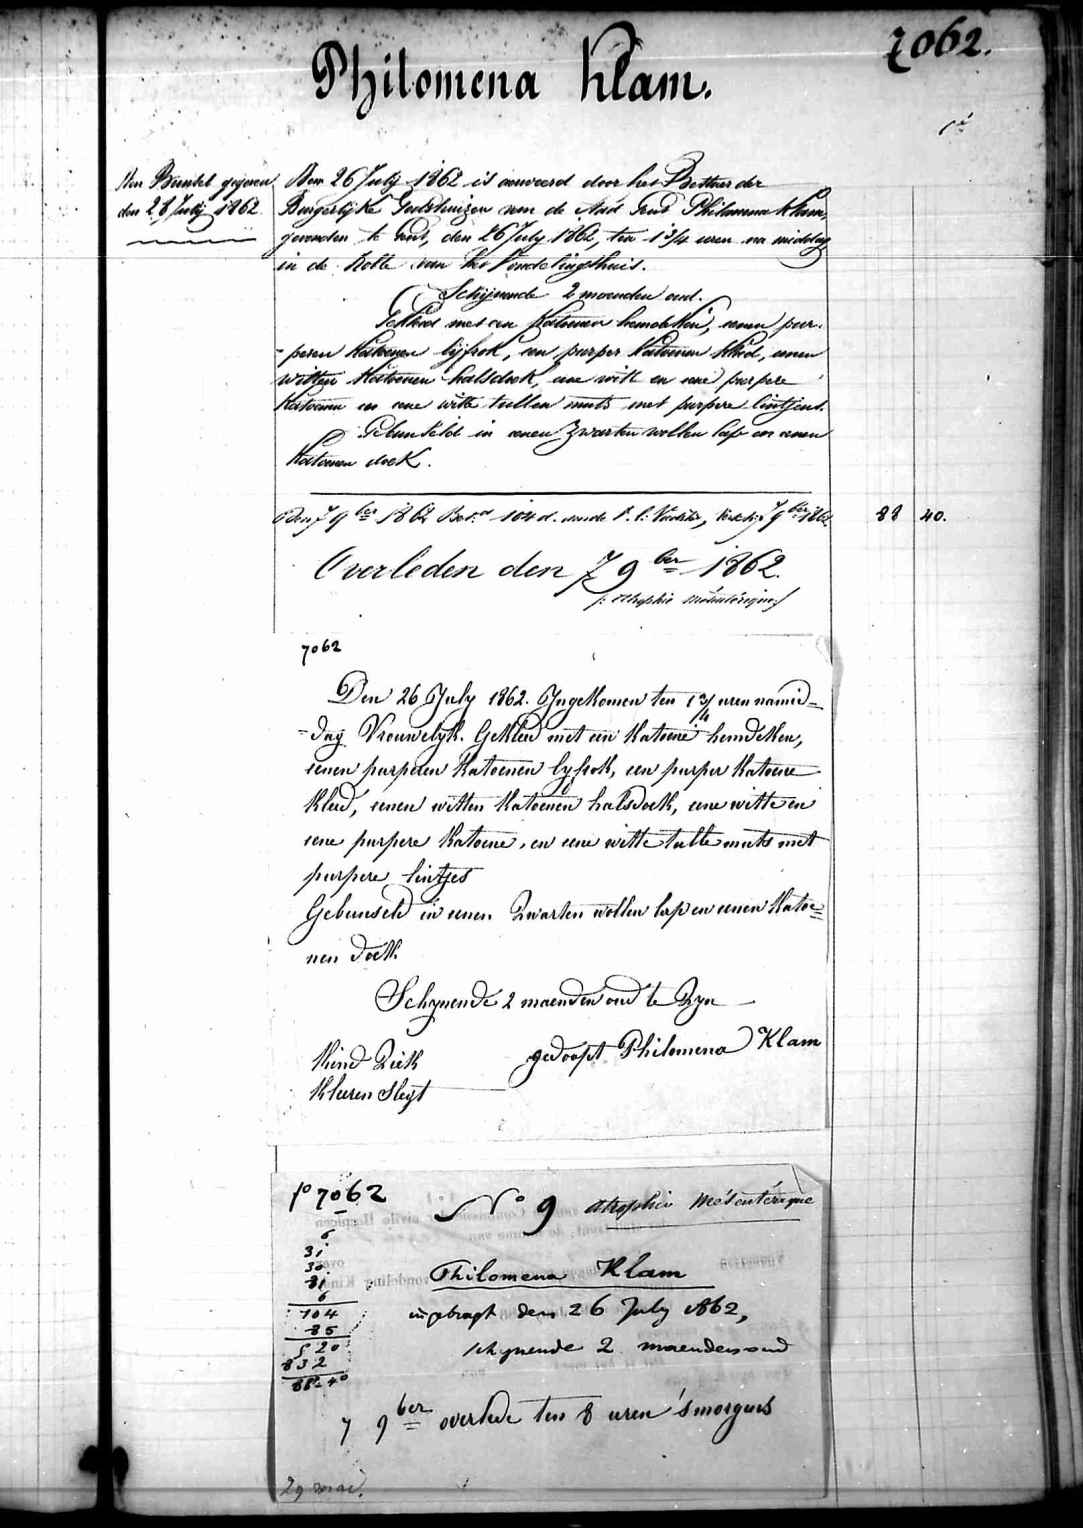 7062.
Philomena Klam.
Ten Bunsel gegeven
den 28 July 1862.
Den 26 July 1862 is aenveerd door het Bestuer der
Burgerlijke Godshuizen van de Stad Gend Philomena Klam,
gevonden te Gent, den 26 July 1862, ten 1 3/4 uren na middag
in de Rolle van het Vondelingshuis.
Schijnende 2 maenden oud.
Gekleed met een Katoenen hemdeken, eenen pur-
-peren Katoenen lijfrok, een purper Katoenen Kleed, eenen
witten Katoenen halsdoek, eene witte en eene purpere
Katoenen en eene witte tullen muts met purpere lintjens.
Gebunseld in eenen Zwarten wollen lap en eenen
Katoenen doek.
Den 7 9ber 1862 104 d. 7 9ber 1862. 88 40.
Overleden den 7 9ber 1862.
/: atrophie mésentérique :/
7062
Den 26 July 1862. Yngekomen ten 1 3/4 uren namid=
=dag Vrouwelyk. Gekleed met een Katoene hemdeken,
eenen purperen Katoenen lyfrok, een purper Katoene
Kleed, eenen witten Katoenen halsdoek, eene witte en
eene purpere Katoene, en eene witte tulle muts met
purpere lintjes
Gebunseld in eenen Zwarten wollen lap en eenen Katoe=
nen doek.
Schynende 2 maenden oud te Zyn
gedoopt Philomena Klam
Kind Ziek
Kleeren Slegt
fo 7062
No 9 atrophie Mésentérique
6
31
30
31
6
104
85
520
832
88-40
Philomena Klam
ingebragt den 26 July 1862,
schynende 2 maenden oud
7 9ber overlede ten 8 uren 's morgens
29 mai.